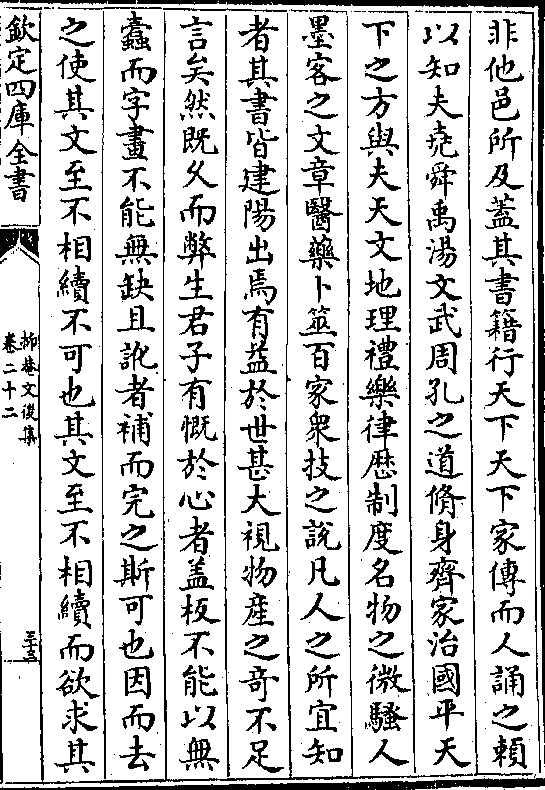 非他邑所及蓋其書籍行天下天下家傳而人誦之賴
以知夫堯舜禹湯文武周孔之道脩身齊家治國平天
下之方與夫天文地理禮樂律歷制度名物之微騷人
墨客之文章醫藥卜筮百家衆技之說凡人之所宜知
者其書皆建陽出焉有益於世甚大視物產之奇不足
言矣然既久而弊生君子有慨於心者蓋板不能以無
蠹而字畫不能無缺且訛者補而完之斯可也因而去
之使其文至不相續不可也其文至不相續而欲求其
欽定四庫全書
抑菴文後集
卷二十二
三十三